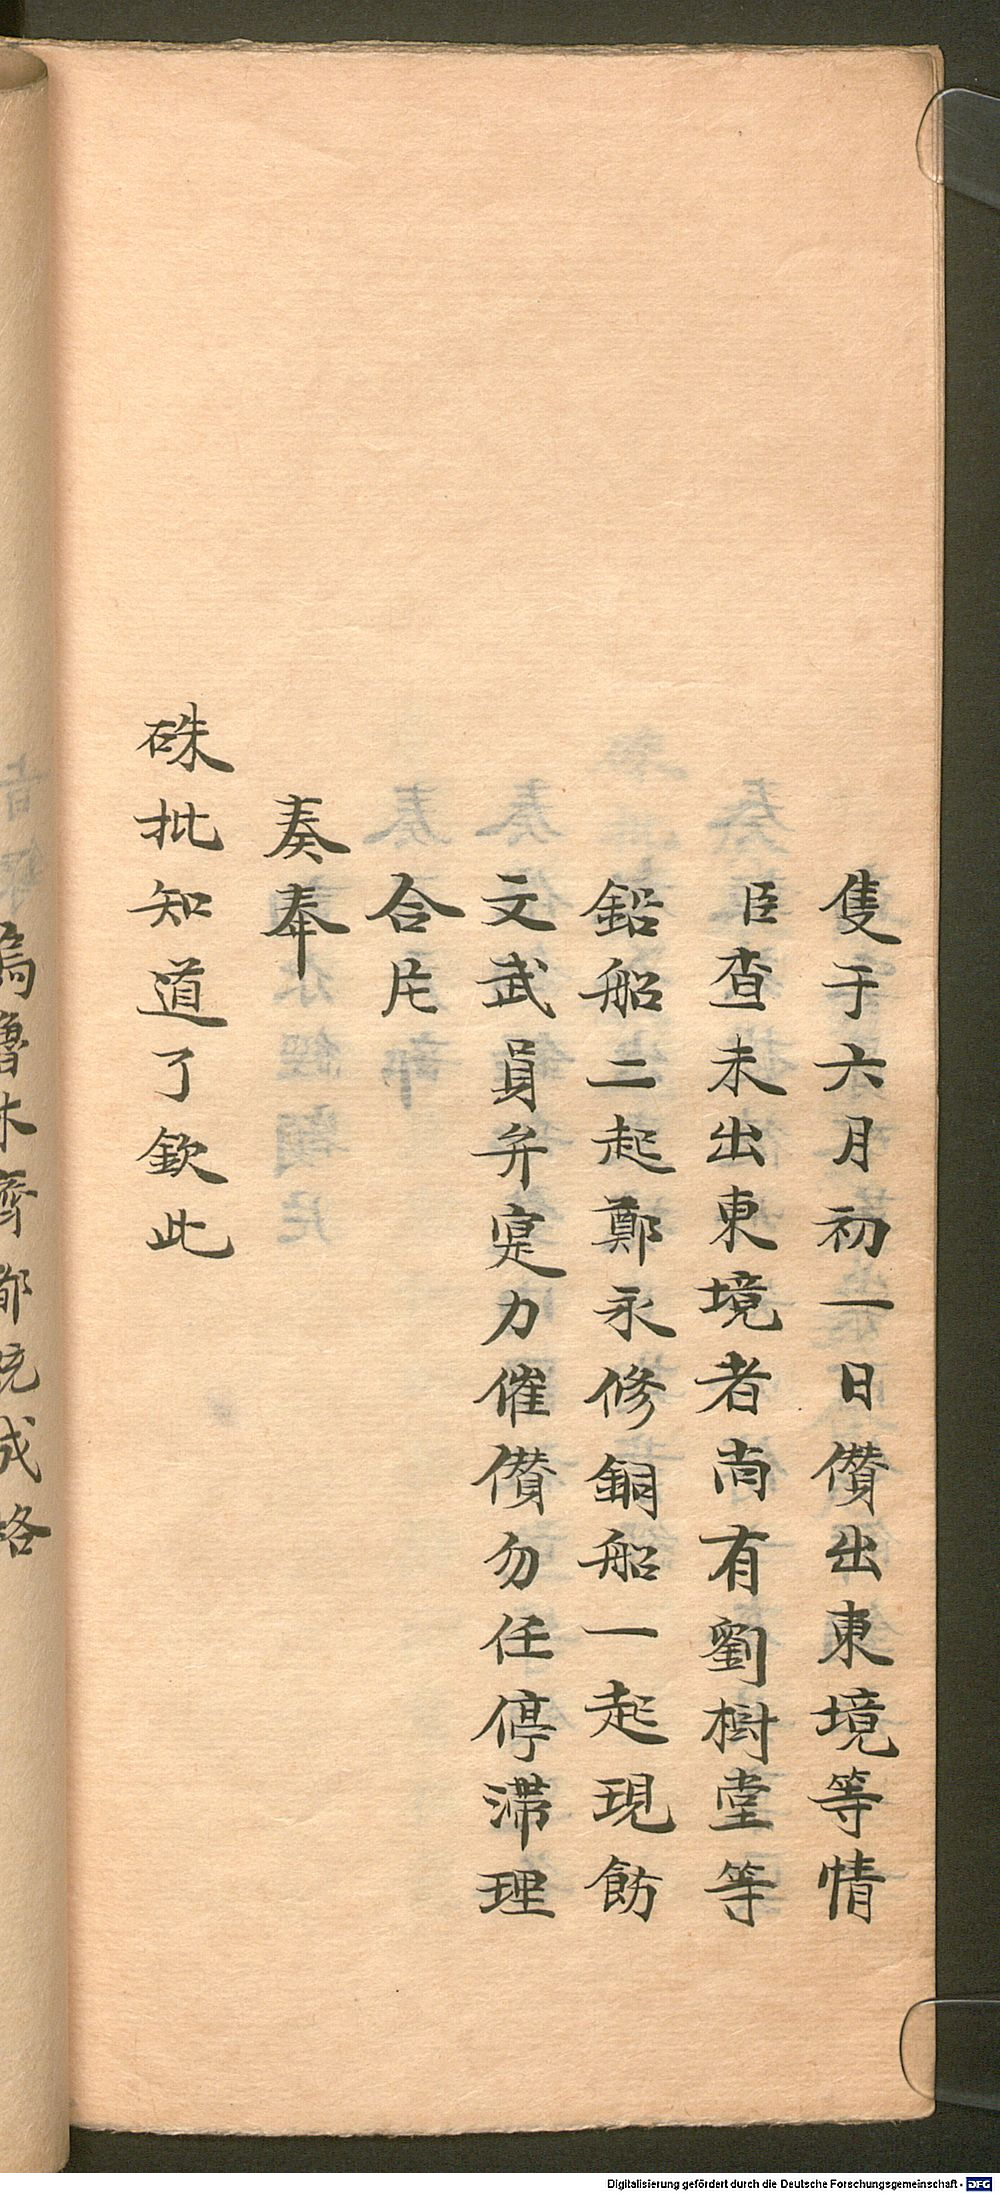 隻于六月初一日儧出東境等情
臣查未出東境者尚有劉樹堂等
鉛船二起鄭永修銅船一起現飭
文武員弁寔力催儧勿任停滯理
合片
奏奉
硃批知道了欽此
烏魯木齊都統成格
Digitalisierung gefördert durch die Deutsche Forschungsgemeinschaft - DFG